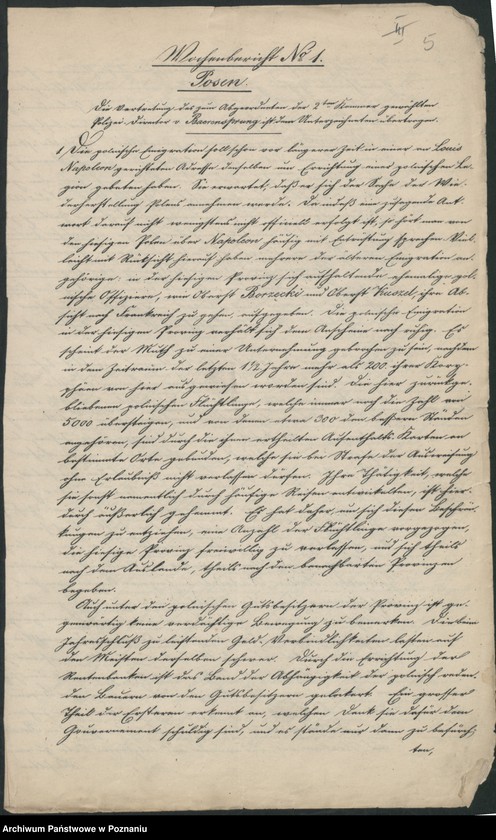 III
5
Wochenbericht No 1.
Posen.
Die Vertretung des zum Abgeordneten der 2ten Kammer gewählten
Polizei Director v Baerensprung ist dem Unterzeichneten übertragen.
1, Die polnische Emigration soll schon vor längerer Zeit in einer an Louis
Napoleon gerichteten Adresse denselben um Errichtung einer polnischen Le-
gion gebeten haben. Sie erwartet, daß er sich der Sache der Wie-
derherstellung Polens annehmen werde. Da indeß eine zusagende Ant-
wort darauf nicht wenigstens nicht officiell erfolgt ist, so hört man von
den hiesigen Polen über Napoleon häufig mit Erbitterung sprechen. Viel-
leicht mit Rücksicht hierauf haben mehrere der älteren Emigration an-
gehörige, in der hiesigen Provinz sich aufhaltende ehemalige pol-
nische Offiziere, wie Oberst Borzecki und Oberst Kuszel, ihre Ab-
sicht nach Frankreich zu gehen, aufgegeben. Die polnische Emigration
in der hiesigen Provinz verhält sich dem Anscheine nach ruhig. Es
scheint der Muth zu einer Unternehmung gebrochen zu sein, nachdem
in dem Zeitraum der letzten 1½ Jahre mehr als 200 ihrer Kory-
phäen von hier ausgewiesen worden sind. Die hier zurückge-
bliebenen polnischen Flüchtlinge, welche immer noch die Zahl von
5000 übersteigen, und von denen etwa 300 den bessern Ständen
angehören, sind durch die ihnen ertheilten Aufenthalts-Karten an
bestimmte Orte gebunden, welche sie bei Strafe der Ausweisung
ohne Erlaubniß nicht verlassen dürfen. Ihre Thätigkeit, welche
sie sonst namentlich durch häufige Reisen entwickelten, ist hier-
durch äußerlich gehemmt. Es hat daher, um sich diesen Beschrän-
kungen zu entziehen, eine Anzahl der Flüchtlinge vorgezogen,
die hiesige Provinz freiwillig zu verlassen, und sich theils
nach dem Auslande, theils nach den benachbarten Provinzen
begeben.
Auch unter den polnischen Gutsbesitzern der Provinz ist ge-
genwärtig keine verdächtige Bewegung zu bemerken. Die beim
Jahresschluß zu leistenden Geld-Verbindlichkeiten lasten auf
den Meisten derselben schwer. Durch die Errichtung der
Rentenbanken ist das Band der Abhängigkeit der polnisch reden-
den Bauern von den Gutsbesitzern gelockert. Ein grosser
Theil der Ersteren erkennt an, welchen Dank sie dafür dem
Gouvernement schuldig sind, und es stände nur dann zu befürch-
ten,
Archiwum Państwowe w Poznaniu